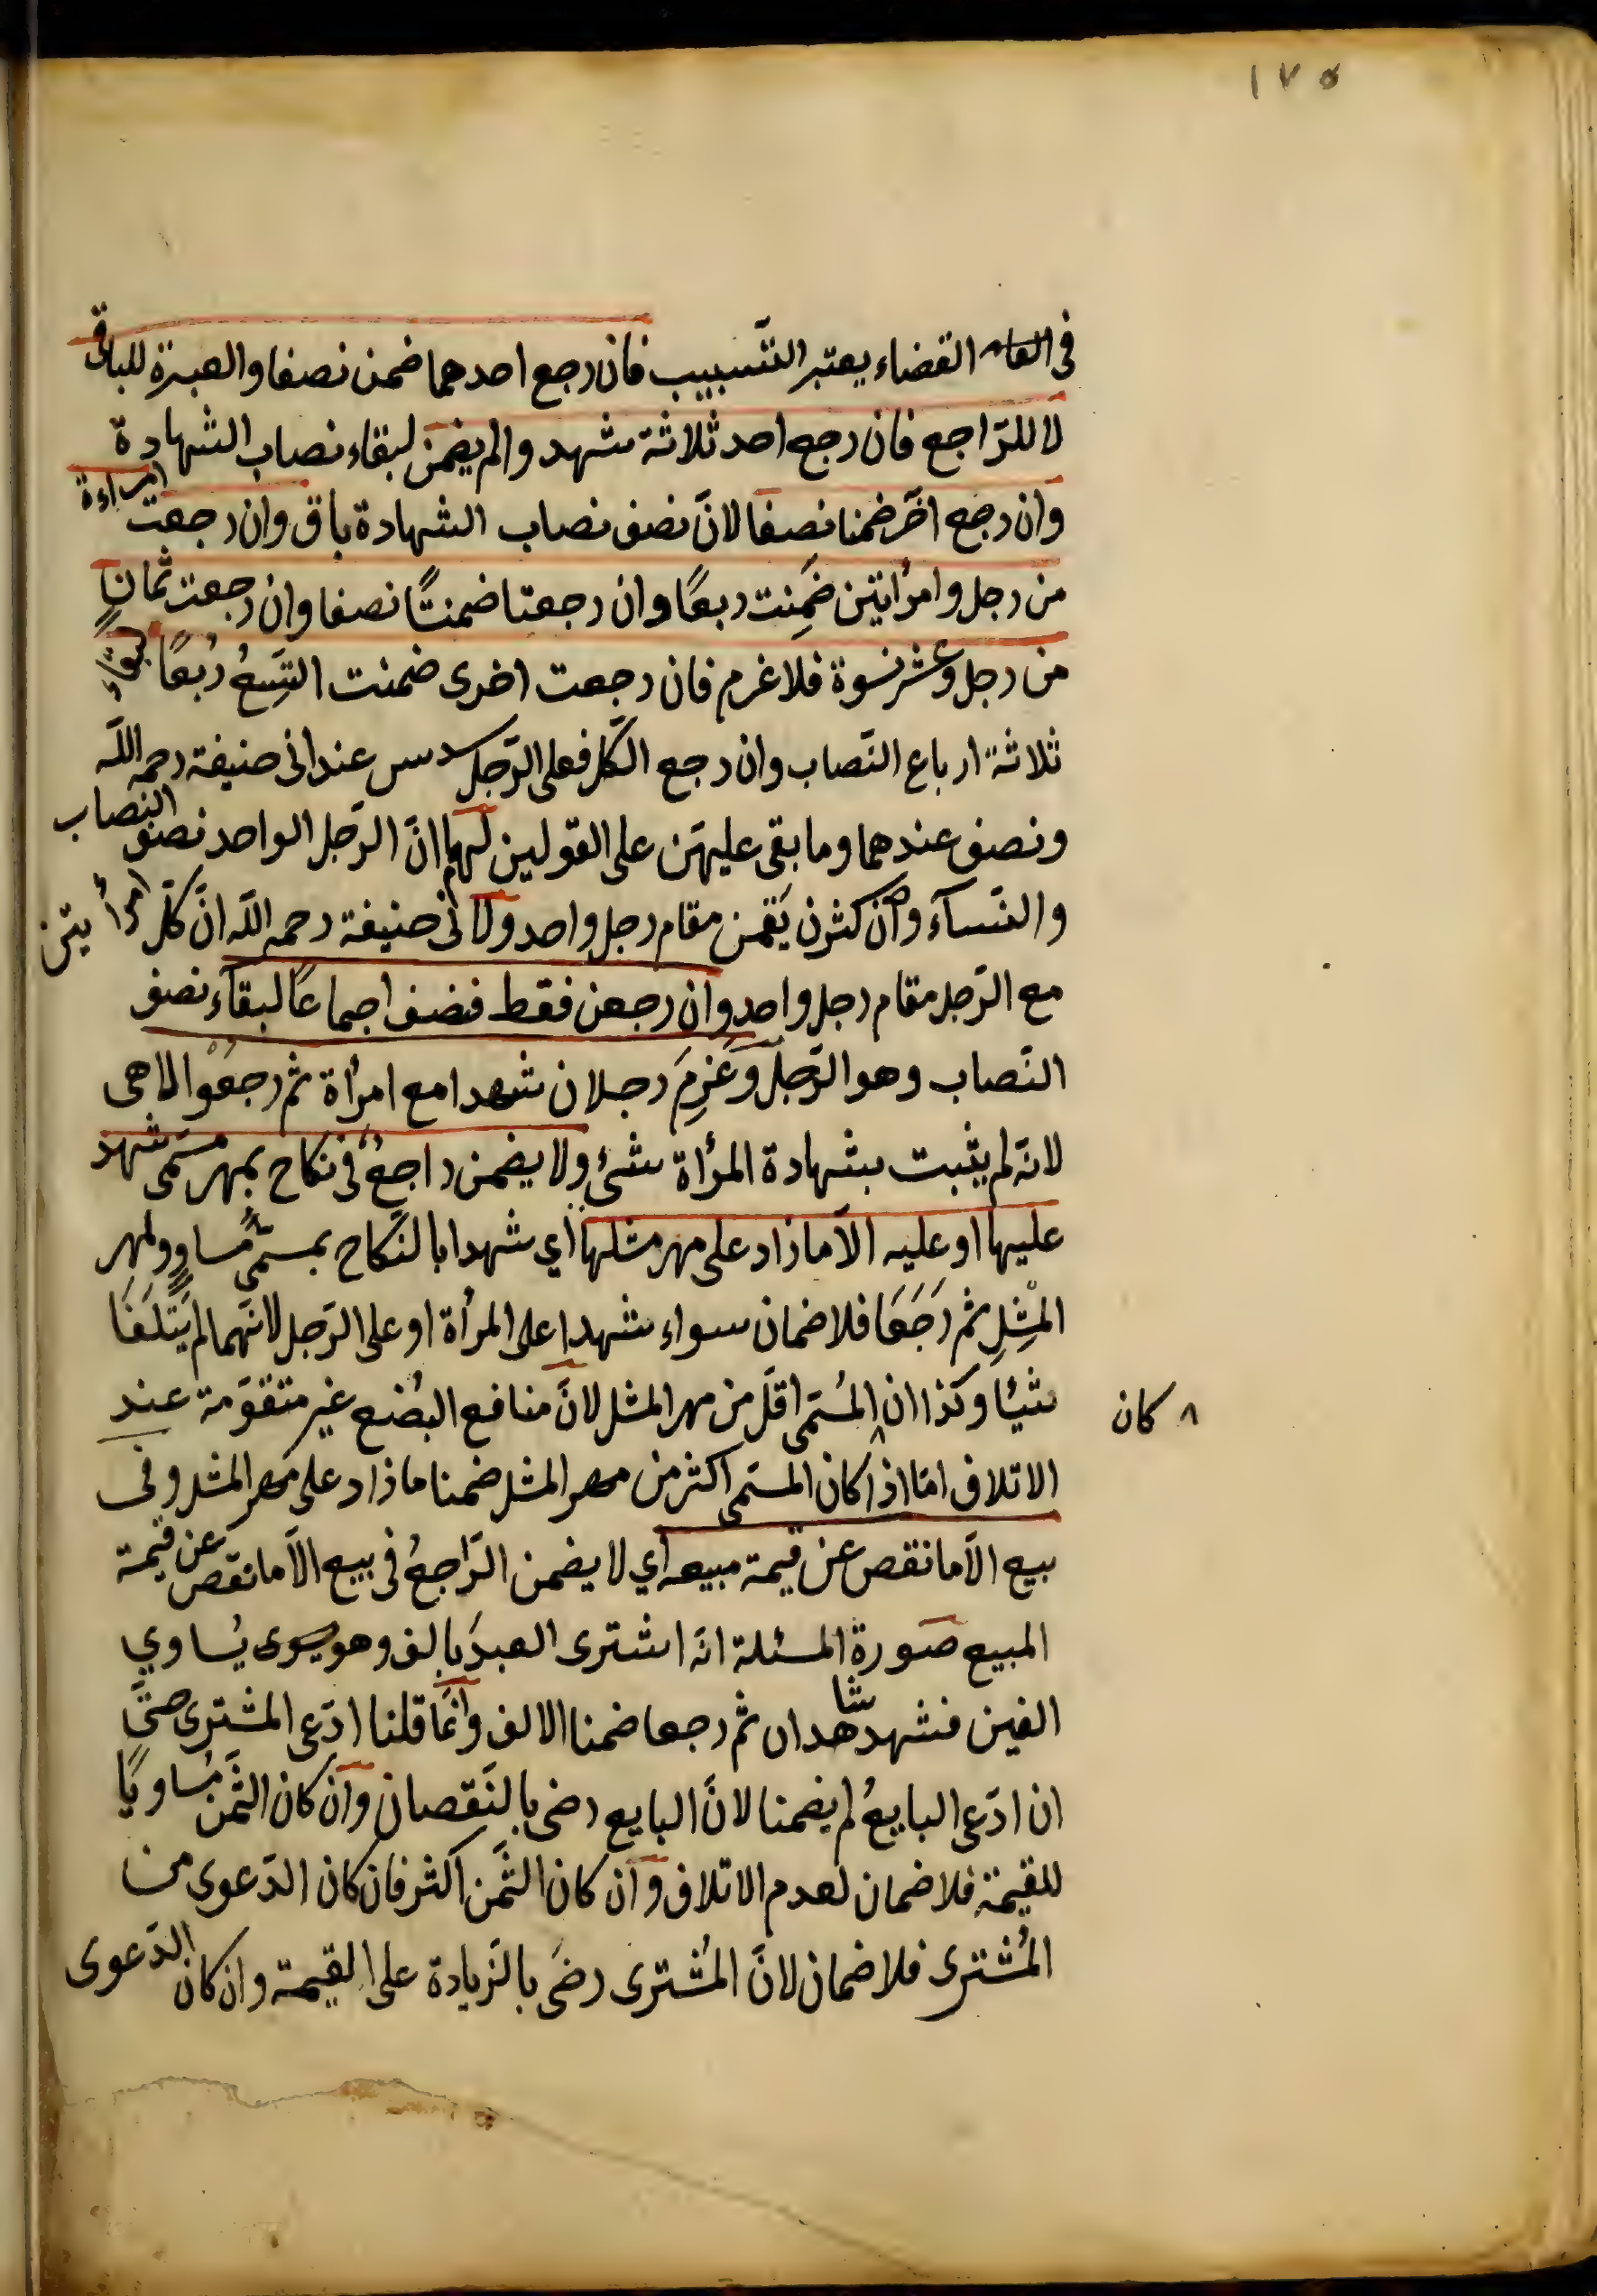 ١٧٥
فى القضاء يعتبر التسبيب فان رجع احدهما ضمن نصفا والعبرة للباقى
لا للرّاجع فان رجع احد ثلاثة شهدوا لم يضمن لبقاء نصاب الشهادة
وان رجع اخر ضمنا نصفا لانّ نصف نصاب الشهادة باق وان رجعت امراءة
من رجل وامرأتين ضَمِنت ربعًا وان رجعتا ضمنتًا نصفا وان رجعت ثمانٍ
من رجل وعشر نسوة فلا غرم فان رجعت اخرى ضمنت التِسعُ رُبعًا لبقاء
ثلاثة ارباع النّصاب وان رجع الكّل فعلى الرّجل سدس عند ابى حنيفة رحمه اللّه
ونصف عندهما وما بقى عليهنّ على القولين لهما انّ الرّجل الواحد نصف النصاب
والنّسآء وان كثرن يَقمن مقام رجل واحد ولابى حنيفة رحمه اللّه انّ كلّ امرأتين
مع الرّجل مقام رجل واحد وان رجعن فقط فنصف اجماعًا لبقآء نصف
النّصاب وهو الرّجلُ وغَرِمَ رجلان شهدا مع امرأة ثم رجعُوا لا هى
لانّه لم يثبت بشهادة المرأة شئ ولا يضمن راجعٌ فى نكاح بمهر مسمّى شهد
عليها او عليه الاّ ما زاد على مهر مثلها اي شهدا بالنّكاح بمسمّى مساوٍ ولمهر
المْثِلِ ثم رَجَعَا فلا ضمان سواء شهدا على المرأة او على الرّجل لانّهما لم يَتلَفَا
شيئا وكذا ان المُسمّى اقلّ من مهر المثل لانّ منافع البُضع غير متقوّمة عند
٨ كان
الاتلاف امّا اذا كان المسمّى اكثر من مهر المثل ضمنا ما زاد على مهر المثل وفى
بيع الاّ ما نقص عن قيمة مبيعه اي لا يضمن الرّاجعُ فى بيع الاّ ما نقص عن قيمة
المبيع صورة المسئلة انّه اشترى العبدَ بالف وهو يُساوي
الفين فشهد شاهدان ثم رجعا ضمنا الالف وانّما قلنا ادّعى المشترى حتّى
ان ادّعى البايعُ لم يضمنا لانّ البايع رضى بالنّقصان وان كان الثّمن مُساويًا
للقيمة فلا ضمان لعدم الاتلاف وان كان الثّمن اكثر فان كان الدّعوى من
المُشترى فلا ضمان لانّ المُشترى رضَى بالزّيادة على القيمة وان كان الدّعوى